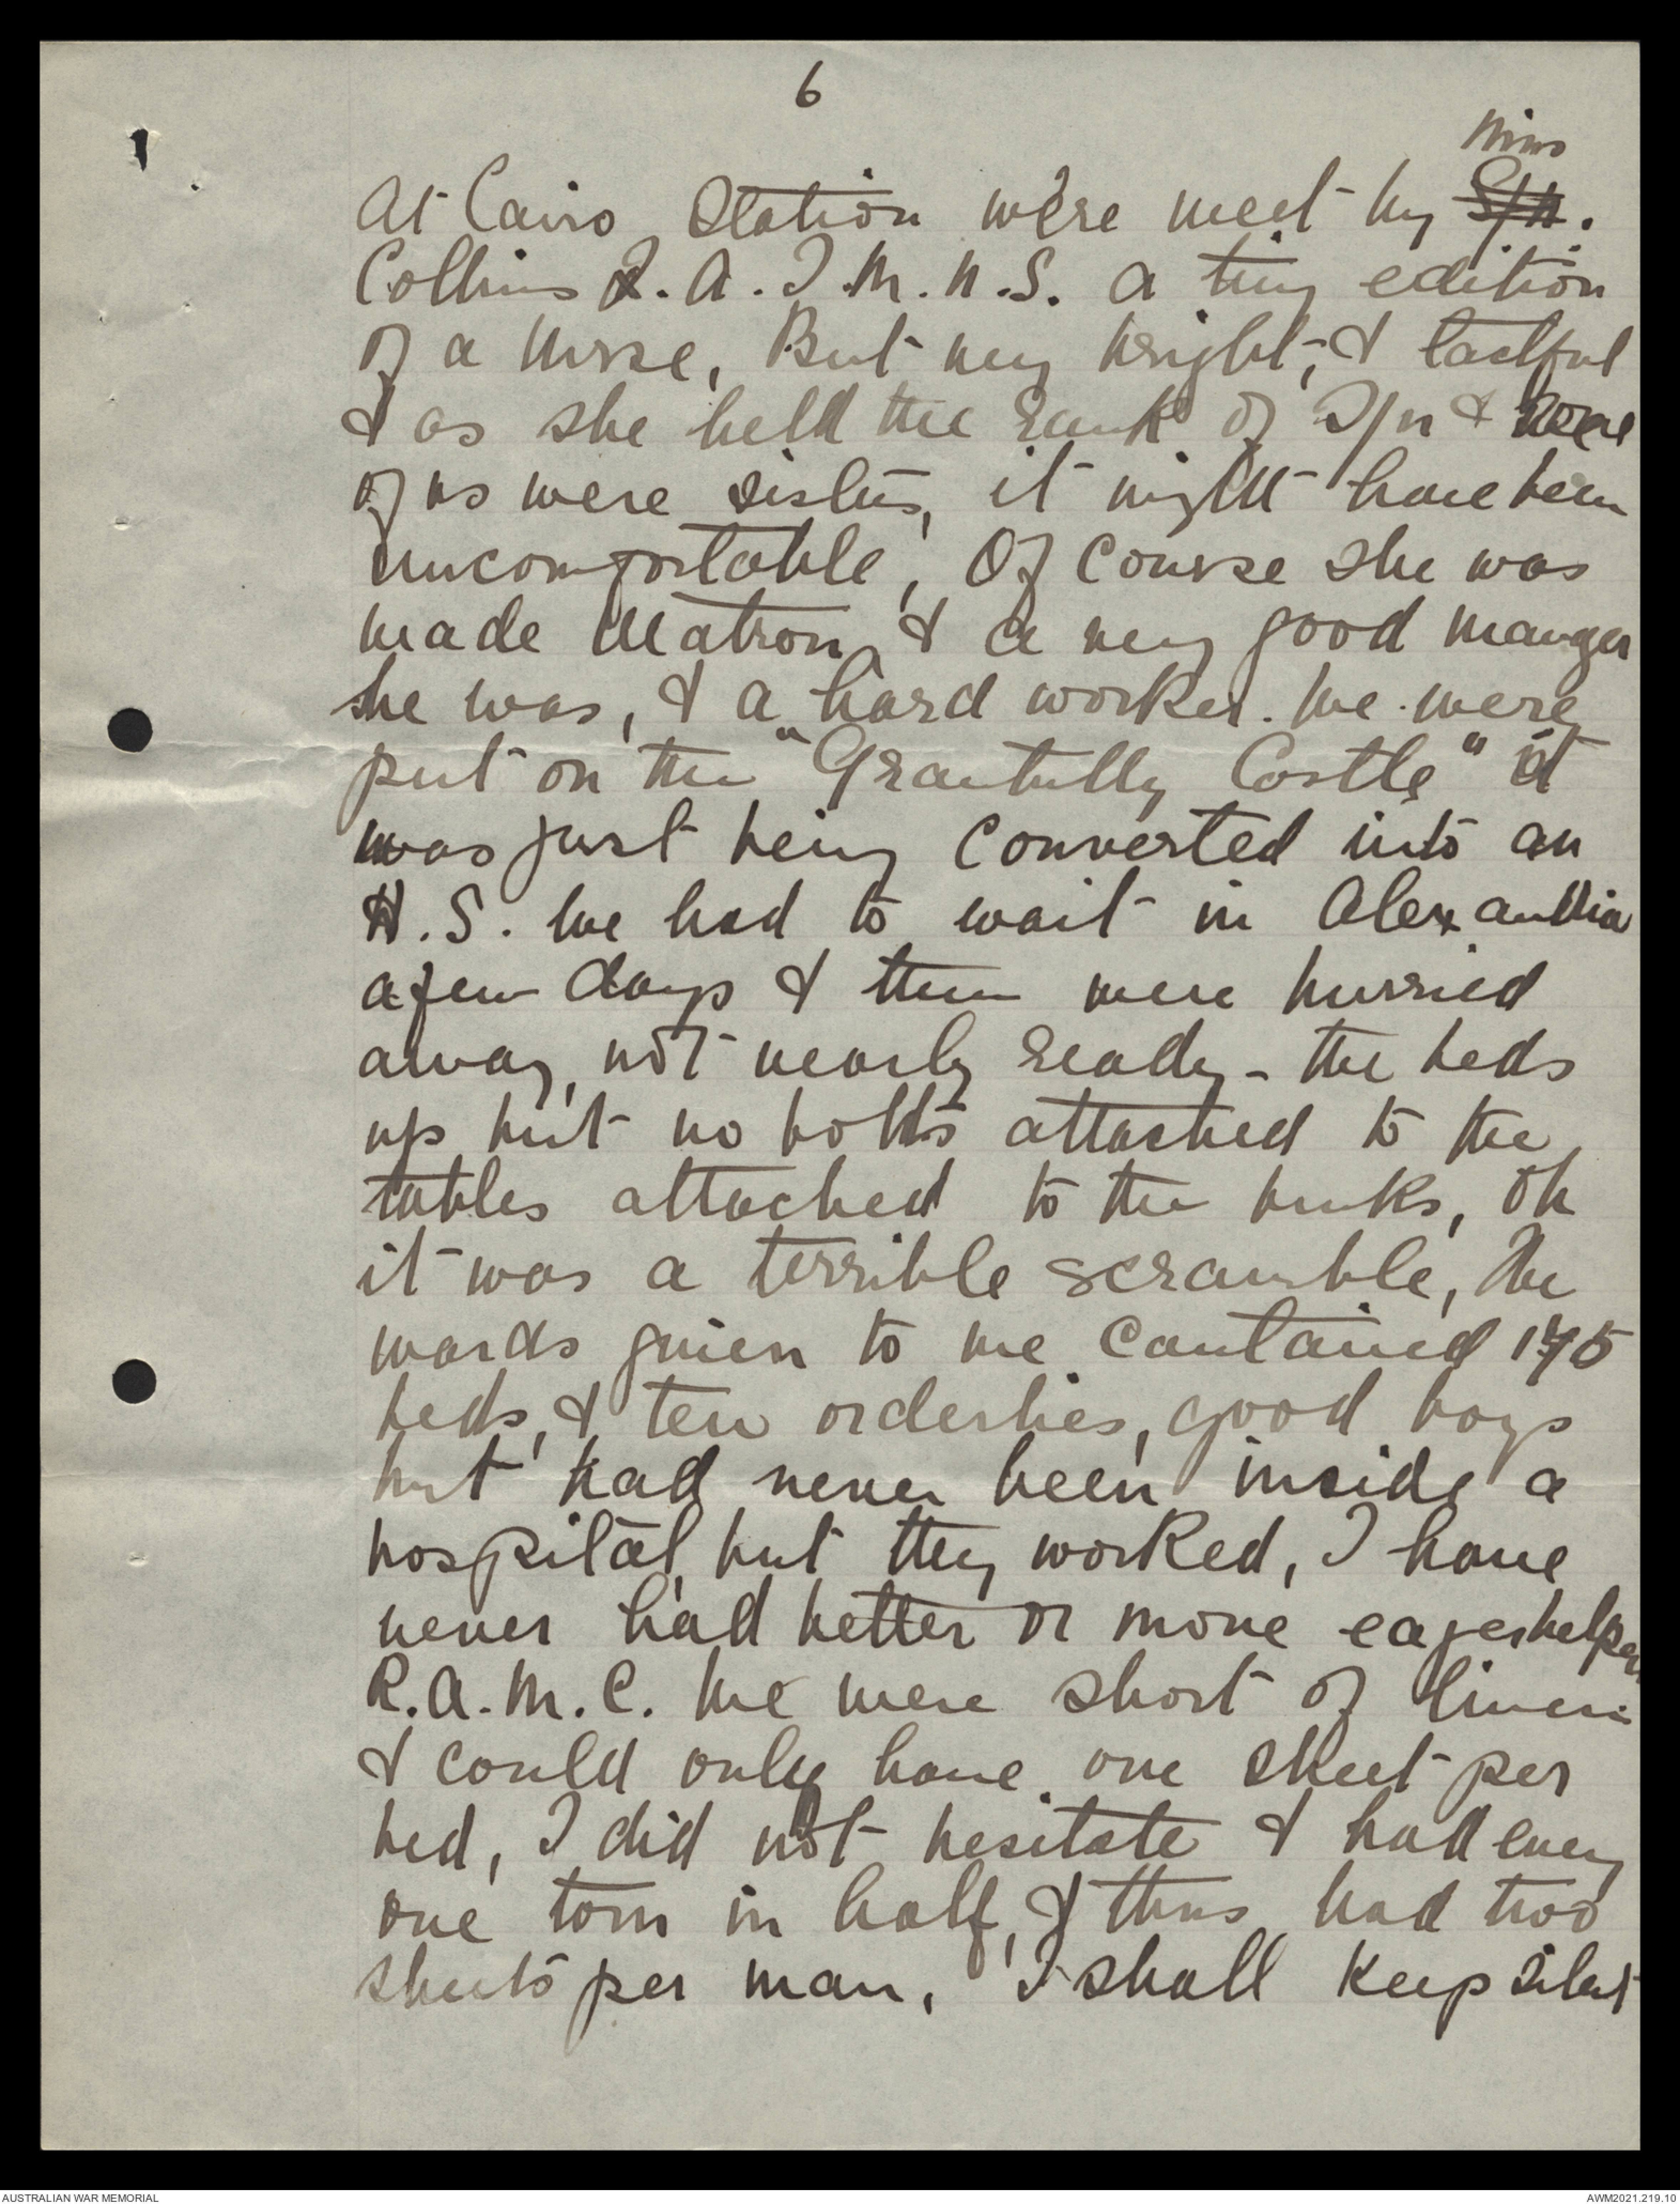 6
Miss
At Cairo Station were meet by S/N.
Collins Q.A.I.M.N.S. a tiny edition
of a Nurse, But very bright, & tactful
& as she held the rank of S/N & some
of us were sisters, it might have been
uncomfortable, Of course she was
made Matron, & a very good manger
she was, & a hard worker. We were
put on the "Grantully Castle" it
was just being converted into an
H.S. We had to wait in Alexandria
a few days & then were hurried
away, not nearly ready - the beds
up but no bolts attached to the
tables attached to the bunks, Oh
it was a terrible scramble, The
wards given to me contained
beds, & ten orderlies, good boys
but had never been inside a
hospital, but they worked, I have
never had better or more eager helpers
R.A.M.C. We were short of linen
& could only have one sheet per
bed, I did not hesitate & had every
one torn in half, & thus had two
sheets per man, I shall keep silent
AUSTRALIAN WAR MEMORIAL
AWM2021.219.10